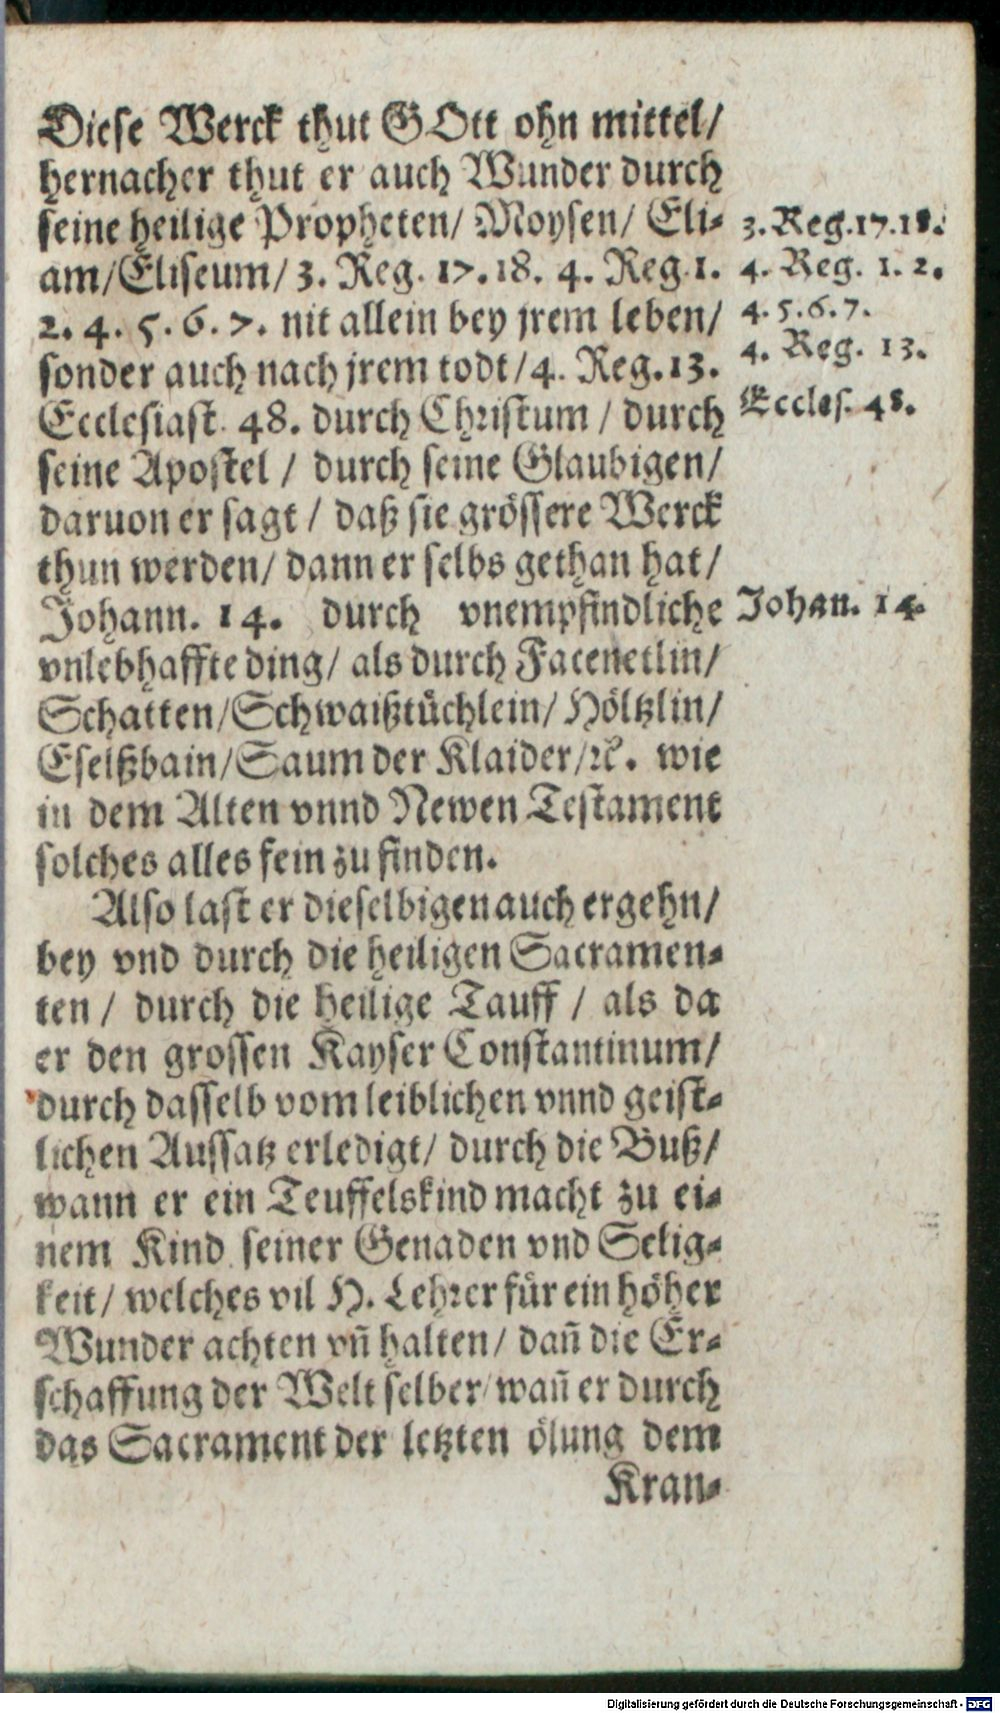 Diese Werck thut GOtt ohn mittel/
hernacher thut er auch Wunder durch
seine heilige Propheten/ Moysen/ Eli-
am/Eliseum/3. Reg. 17.18. 4. Reg.1.
2. 4. 5. 6. 7. nit allein bey jrem leben/
sonder auch nach jrem todt/4. Reg.13.
Ecclesiast. 48. durch Christum / durch
seine Apostel / durch seine Glaubigen/
daruon er sagt / daß sie grössere Werck
thun werden/ dann er selbs gethan hat/
Johann. 14. durch vnempfindliche
vnlebhaffte ding/ als durch Facenetlin/
Schatten/Schwaißtüchlein/ Höltzlin/
Eselßbain/Saum der Klaider/ꝛc. wie
in dem Alten vnnd Newen Testament
solches alles fein zu finden.
Also last er dieselbigen auch ergehn/
bey vnd durch die heiligen Sacramen-
ten / durch die heilige Tauff / als da
er den grossen Kayser Constantinum/
durch dasselb vom leiblichen vnnd geist-
lichen Aussatz erledigt/ durch die Buß/
wann er ein Teuffelskind macht zu ei-
nem Kind seiner Genaden vnd Selig-
keit/ welches vil H. Lehrer für ein höher
Wunder achten vñ halten/ dañ die Er-
schaffung der Welt selber/wañ er durch
das Sacrament der letzten ölung dem
Kran-
3. Reg.17.18.
4. Reg. 1. 2.
4. 5. 6. 7.
4. Reg. 13.
Eccles. 48.
Johan. 14.
Digitalisierung gefördert durch die Deutsche Forschungsgemeinschaft - DFG